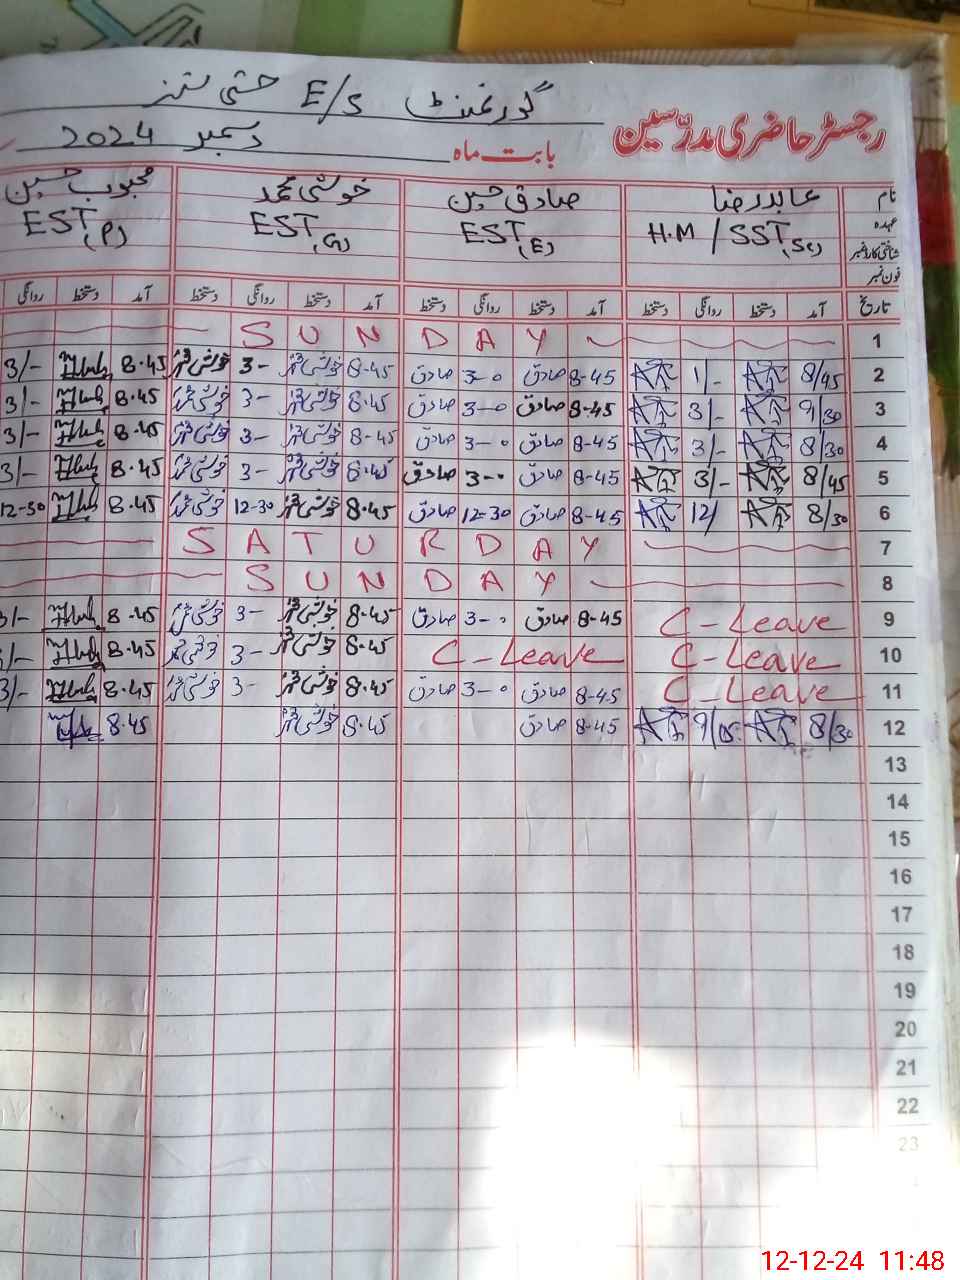 گورنمنٹ E/S
رجسٹر حاضری مدرّسین
بابت ماہ دسمبر 2024
نام عابد رضا صادق حسین خوشی محمد محبوب حسین
عہدہ H.M / SST(Sc) EST(E) EST(G) EST(P)
شناختی کارڈ نمبر
فون نمبر
تاریخ آمد دستخط روانگی دستخط آمد دستخط روانگی دستخط آمد دستخط روانگی دستخط آمد دستخط روانگی
1 SUNDAY
2 8/45 1/- 8-45 صادق 3-0 صادق 8-45 خوشی محمد 3- خوشی محمد 8.45 3/-
3 9/30 3/- 8-45 صادق 3-0 صادق 8.45 خوشی محمد 3- خوشی محمد 8.45 3/-
4 8/30 3/- 8-45 صادق 3-0 صادق 8-45 خوشی محمد 3- خوشی محمد 8.45 3/-
5 8/45 3/- 8-45 صادق 3-0 صادق 8.45 خوشی محمد 3- خوشی محمد 8.45 3/-
6 8/30 12/ 8-45 صادق 12-30 صادق 8.45 خوشی محمد 12-30 خوشی محمد 8.45 12-30
7 SATURDAY
8 SUNDAY
9 C-Leave 8-45 صادق 3-0 صادق 8.45 خوشی محمد 3- خوشی محمد 8.45 3/-
10 C-Leave C-Leave 8.45 خوشی محمد 3- خوشی محمد 8.45
11 C-Leave 8-45 صادق 3-0 صادق 8.45 خوشی محمد 3- خوشی محمد 8.45 3/-
12 8/30 9/05 8-45 صادق 8.45 خوشی محمد 8.45
13
14
15
16
17
18
19
20
21
22
23
12-12-24 11:48